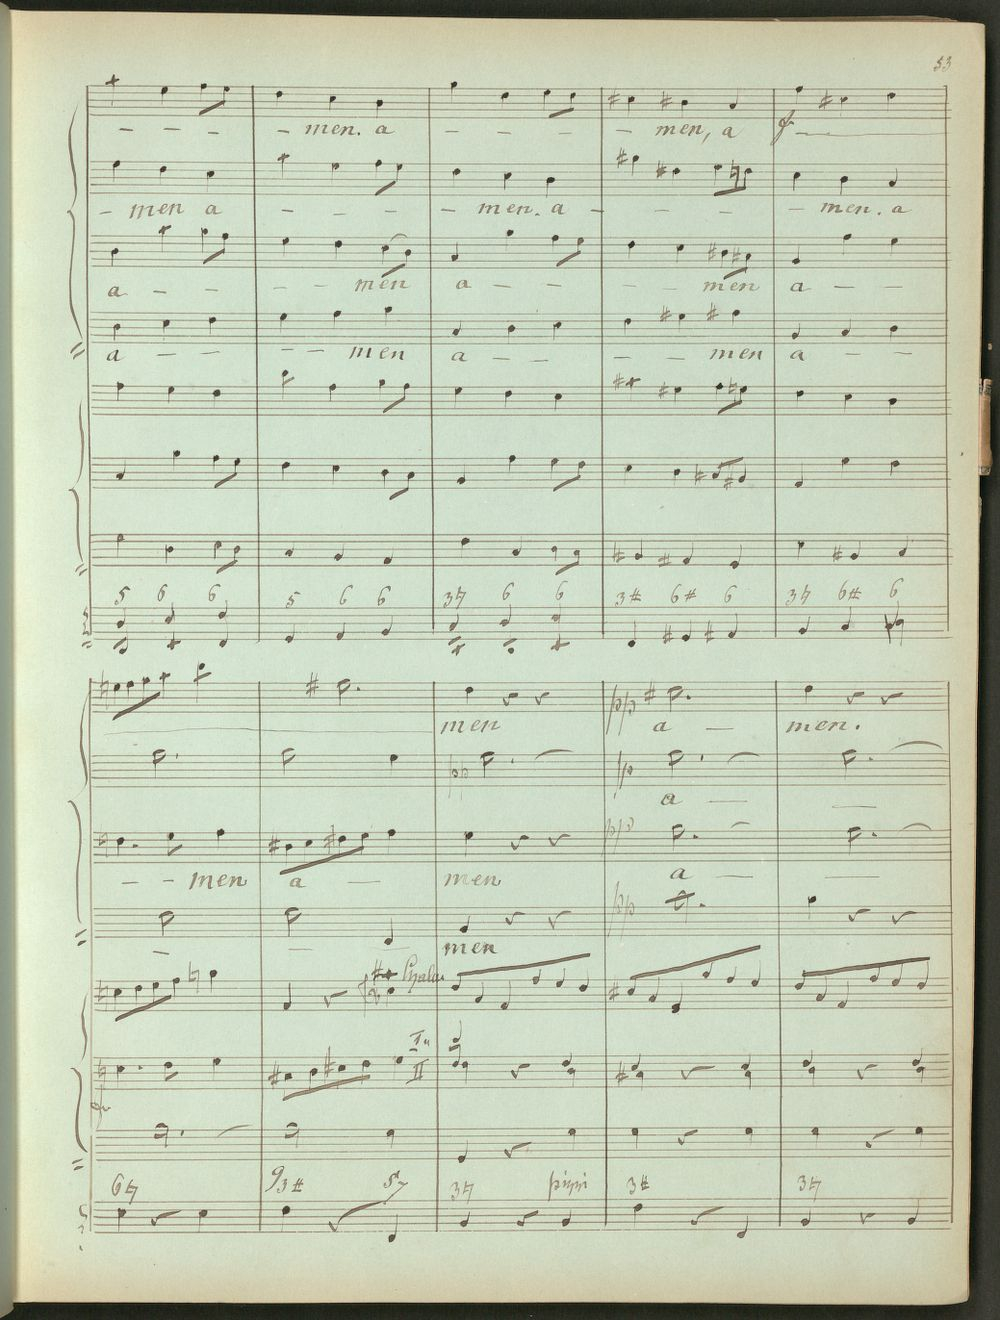 53
- - - - men. a - - - - men, a f
- men a - - - - men. a - - - - men. a
a - - - - men a - - - - men a - -
a - - - - men a - - - - men a - -
5 6 6 5 6 6 3♮ 6 6 3# 6# 6 3♮ 6# 6
men pp a - men.
pp pp a - -
- - men a - men pp a - -
- - men pp
I II
6♮ 9 3# 5 3♮ 3# 3♮